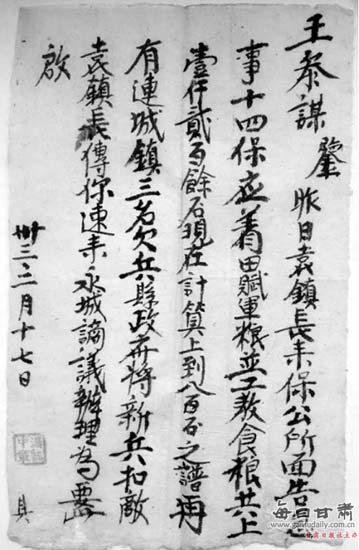 王参謀 鑒 昨日袁鎮長来保公所面告之
事十四保应着田賦軍粮並工教食粮共上
壹仟贰百餘石現在計算上到八百石之譜再
有連城鎮三名欠兵縣政府将新兵扣敵
袁鎮長傳你速来永城謫議辦理為要
啟
卅三、二月十七日
具
每日甘肃